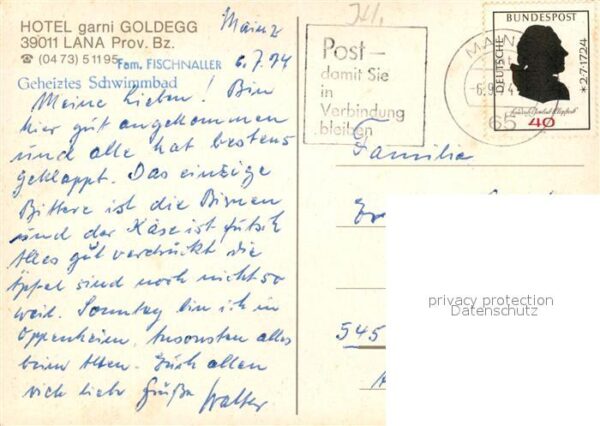 HOTEL garni GOLDEGG
39011 LANA Prov. Bz.
☎ (0473) 51195 Fam. FISCHNALLER
Geheiztes Schwimmbad
Mainz
6.7.74
Meine Lieben! Bin
hier gut angekommen
und alle hat bestens
geklappt. Das einzige
Bittere ist die Birnen
und der Käse ist futsch
Alles gut verdrückt die
Äpfel sind noch nicht so
weit. Sonntag bin ich in
Oppenheim, Ansonsten alles
beim Alten. Euch allen
viele liebe Grüße Walter
Post –
damit Sie
in
Verbindung
bleiben
MAIN
65
DEUTSCHE
BUNDESPOST
* 2·7·1724
40
Familie
545
privacy protection
Datenschutz